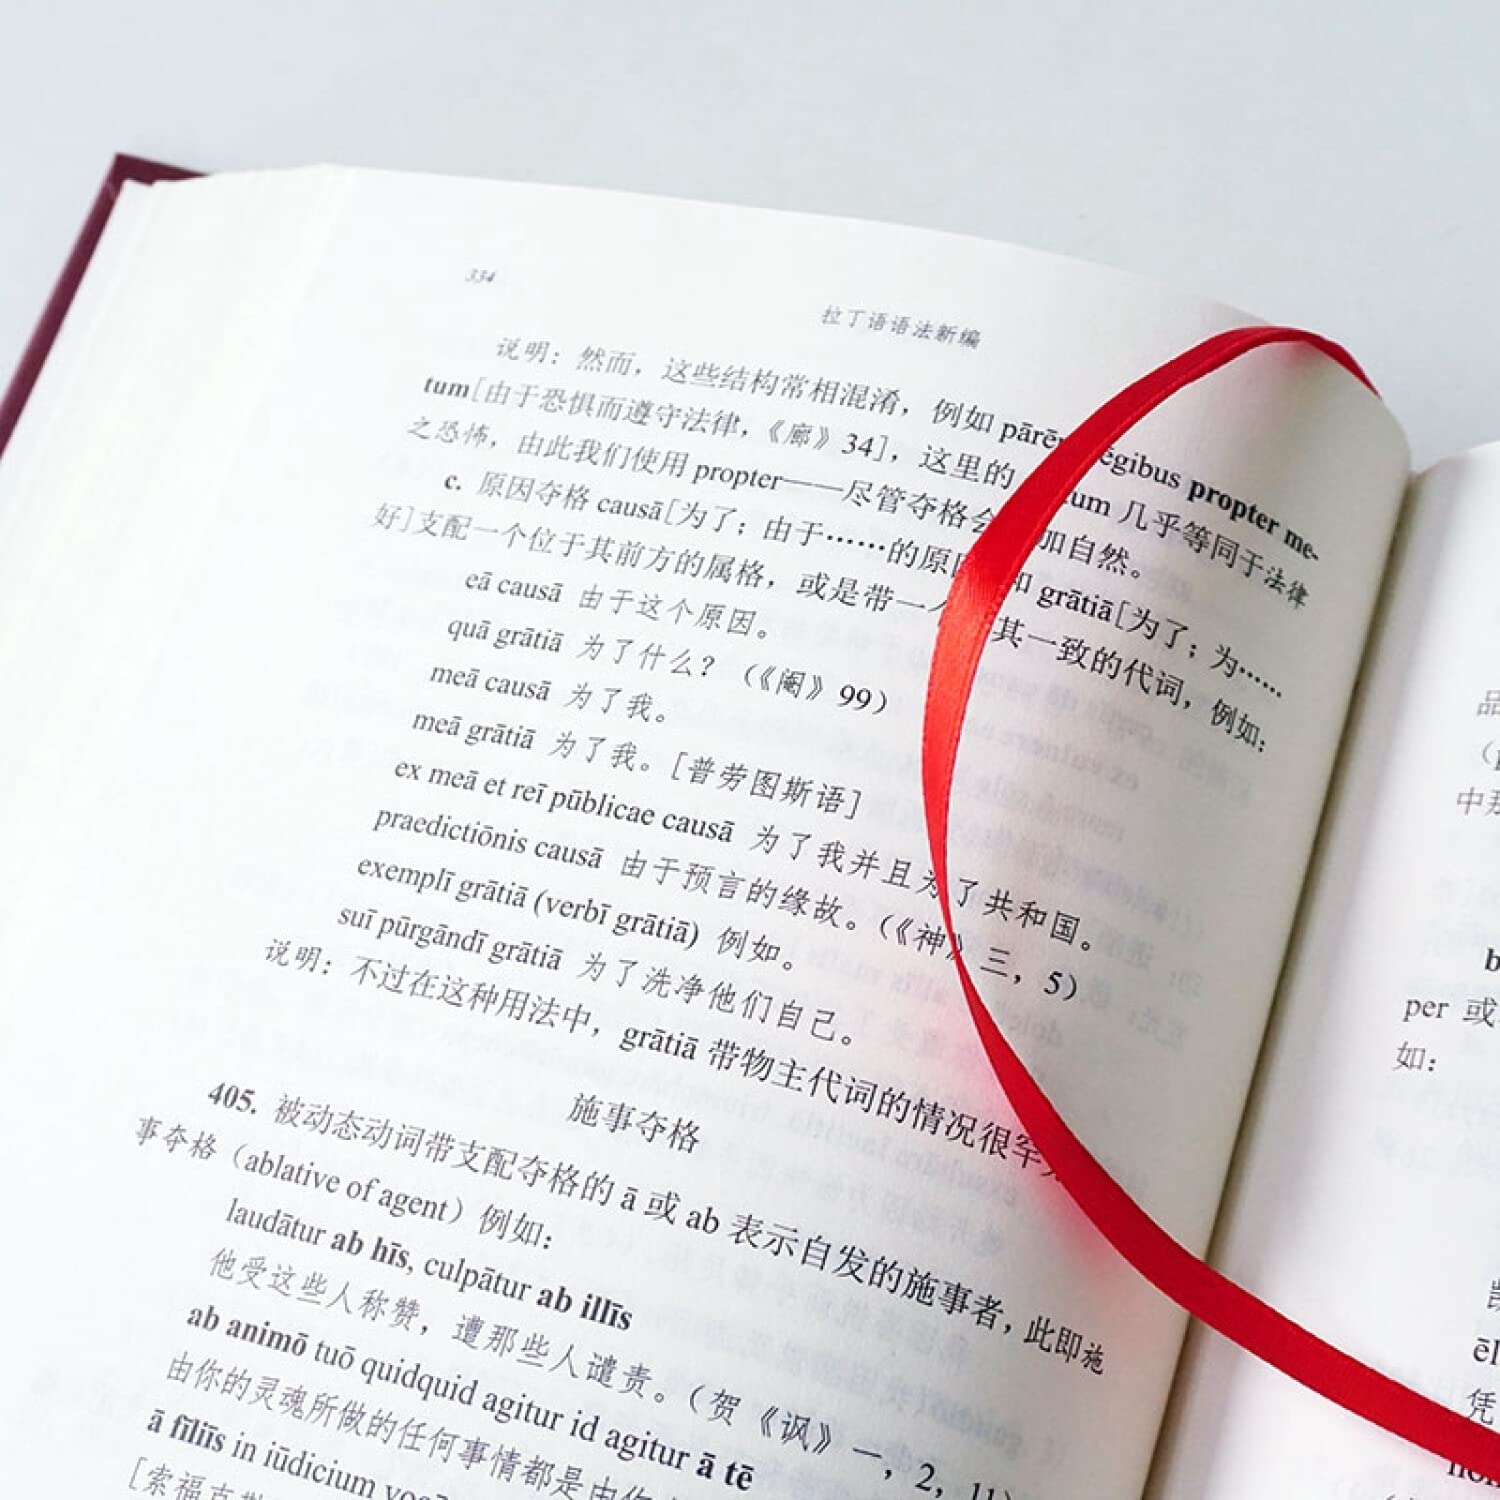 334
拉丁语语法新编
说明：然而，这些结构常相混淆，例如 pārē ēgibus propter me-
tum[由于恐惧而遵守法律，《廊》34]，这里的 tum 几乎等同于法律
之恐怖，由此我们使用 propter——尽管夺格会 加自然。
c. 原因夺格 causā[为了；由于……的原因 和 grātiā[为了；为……
好]支配一个位于其前方的属格，或是带一个 其一致的代词，例如：
eā causā 由于这个原因。
quā grātiā 为了什么？（《阉》99）
meā causā 为了我。
meā grātiā 为了我。[普劳图斯语]
ex meā et reī pūblicae causā 为了我并且为了共和国。
praedictiōnis causā 由于预言的缘故。（《神》三，5）
exemplī grātiā (verbī grātiā) 例如。
suī pūrgāndī grātiā 为了洗净他们自己。
说明：不过在这种用法中，grātiā 带物主代词的情况很罕
施事夺格
405. 被动态动词带支配夺格的 ā 或 ab 表示自发的施事者，此即施
事夺格（ablative of agent）例如：
laudātur ab hīs, culpātur ab illīs
他受这些人称赞，遭那些人谴责。（贺《讽》一，2，11）
ab animō tuō quidquid agitur id agitur ā tē
由你的灵魂所做的任何事情都是由你
ā fīliīs in iūdicium
[索福克
品
（
中
b
per 或
如：
凯
ēl
凭